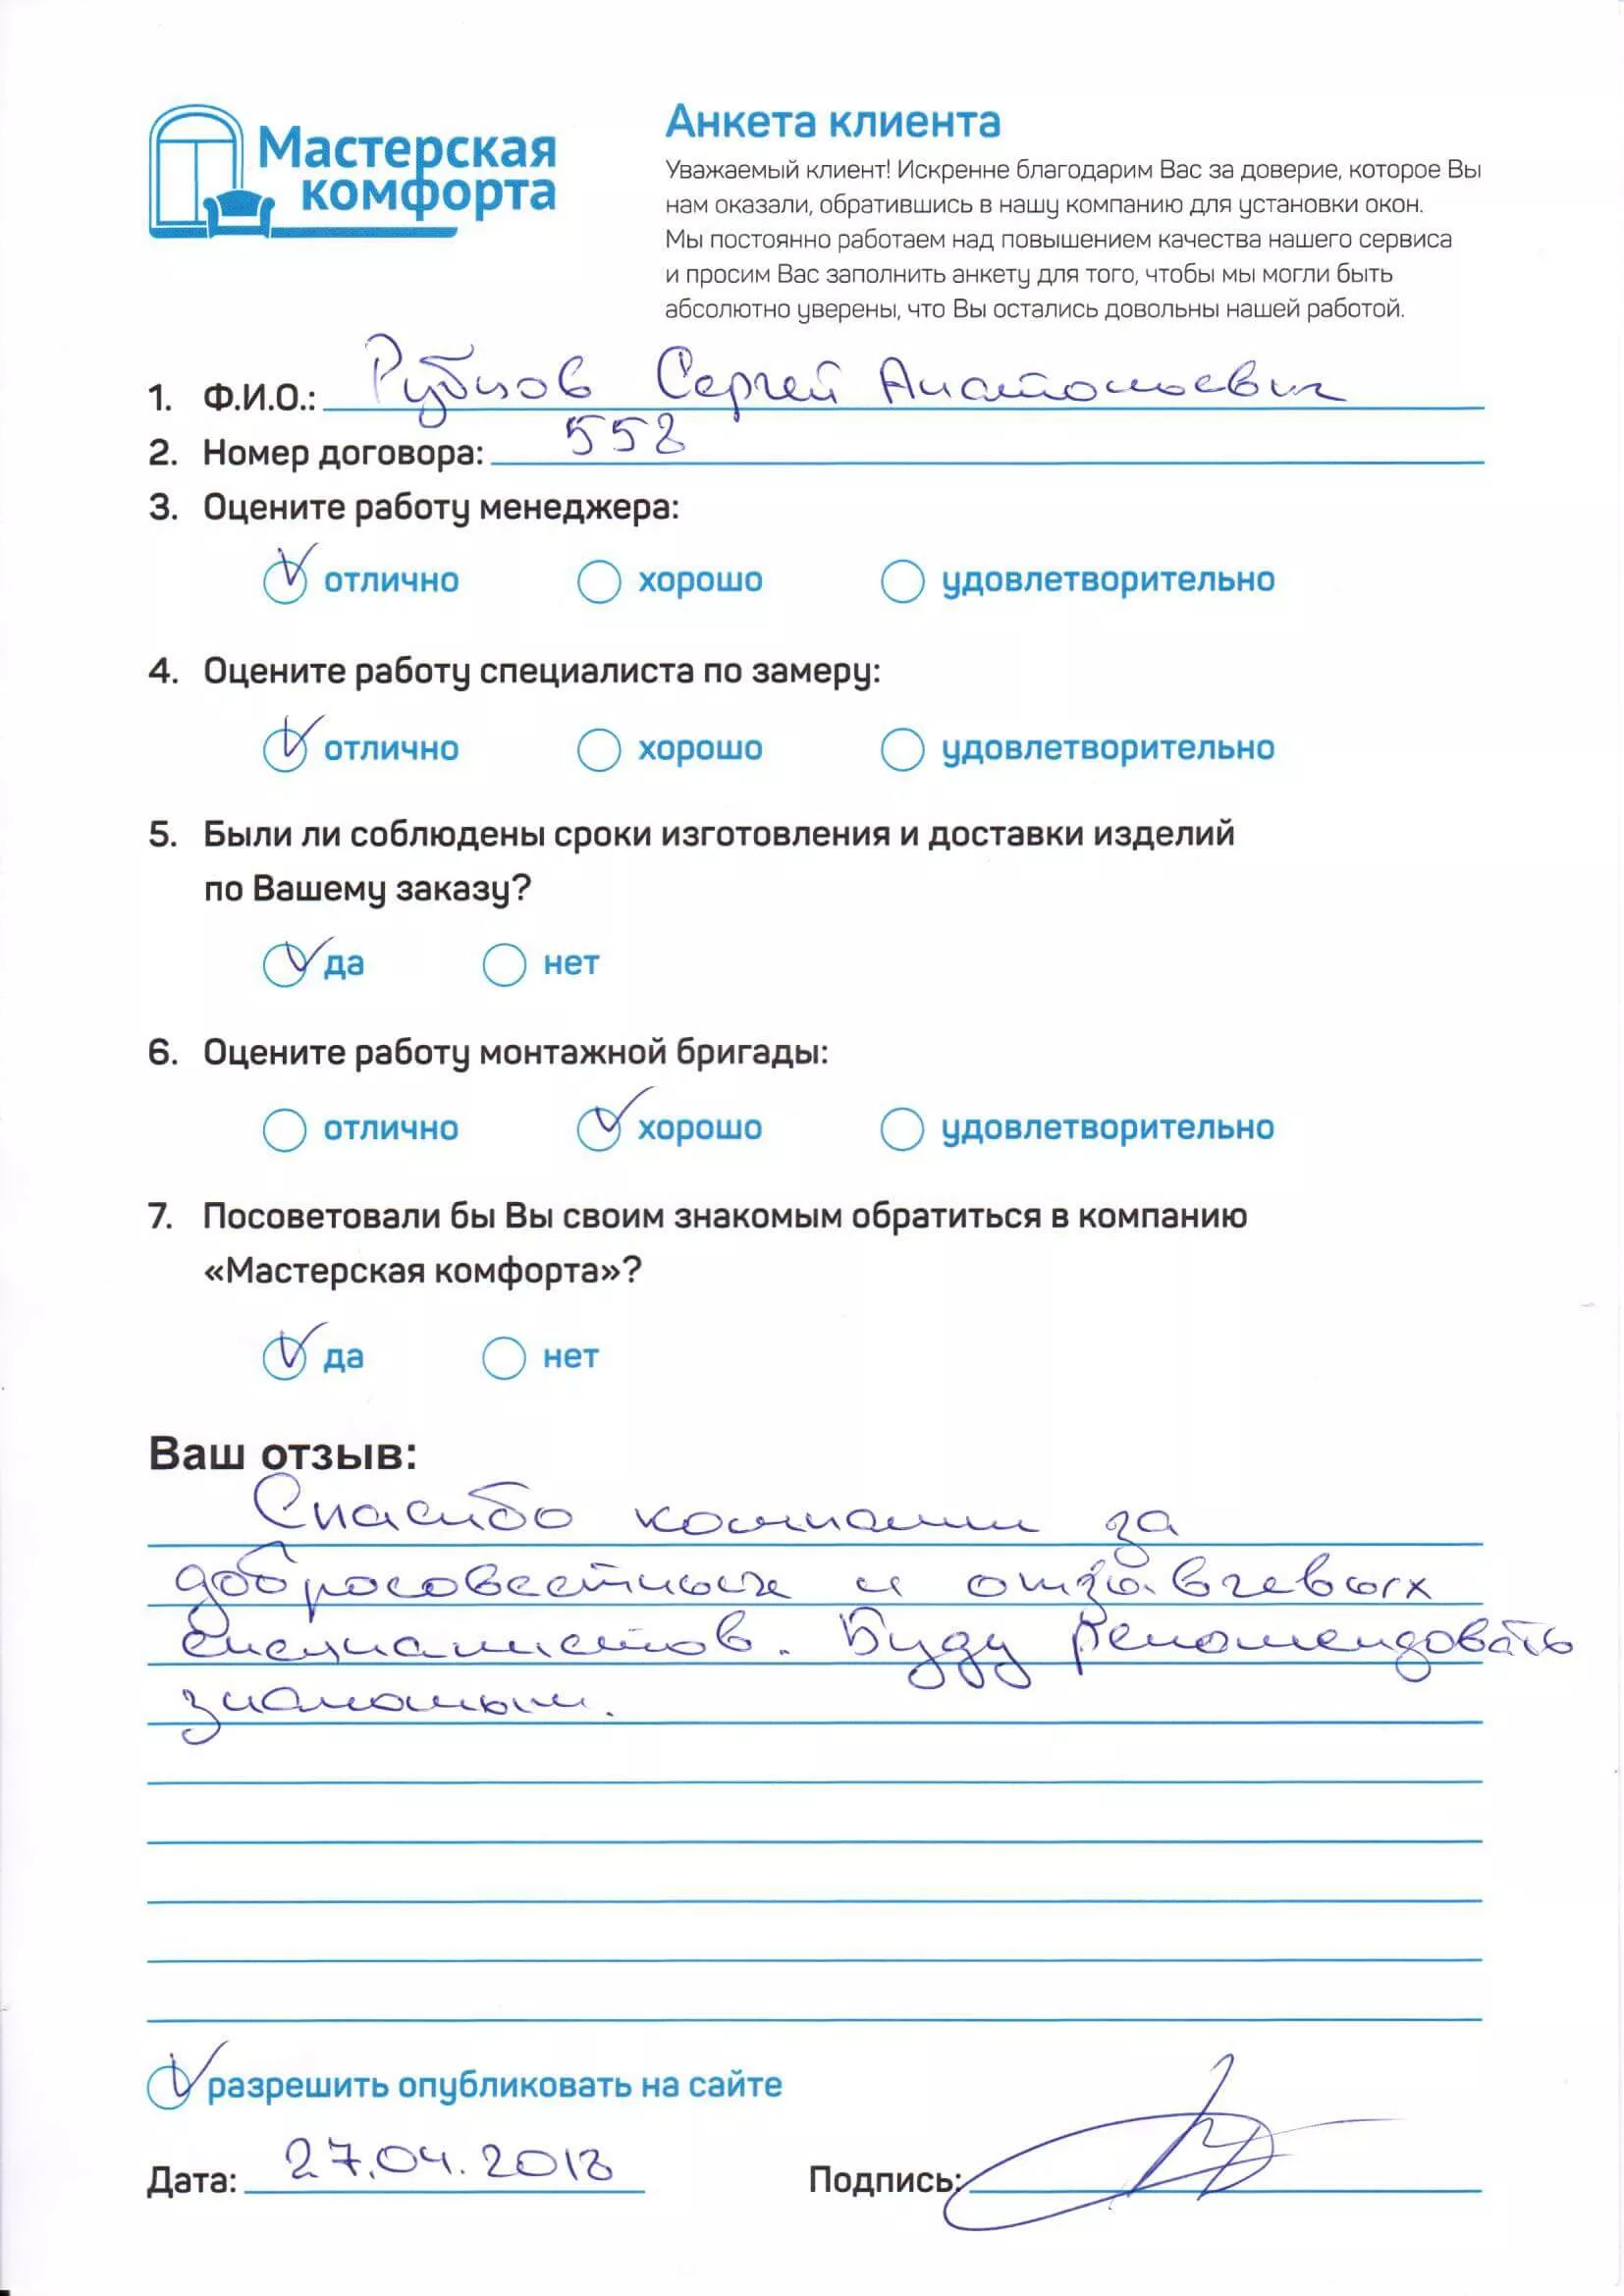 Мастерская
комфорта
Анкета клиента
Уважаемый клиент! Искренне благодарим Вас за доверие, которое Вы
нам оказали, обратившись в нашу компанию для установки окон.
Мы постоянно работаем над повышением качества нашего сервиса
и просим Вас заполнить анкету для того, чтобы мы могли быть
абсолютно уверены, что Вы остались довольны нашей работой.
1. Ф.И.О.: Рубцов Сергей Анатольевич
2. Номер договора: 558
3. Оцените работу менеджера:
отлично хорошо удовлетворительно
4. Оцените работу специалиста по замеру:
отлично хорошо удовлетворительно
5. Были ли соблюдены сроки изготовления и доставки изделий
по Вашему заказу?
да нет
6. Оцените работу монтажной бригады:
отлично хорошо удовлетворительно
7. Посоветовали бы Вы своим знакомым обратиться в компанию
«Мастерская комфорта»?
да нет
Ваш отзыв:
Спасибо компании за
добросовестных и
специалистов. Буду рекомендовать
знакомым.
разрешить опубликовать на сайте
Дата: 27.04.2018 Подпись: